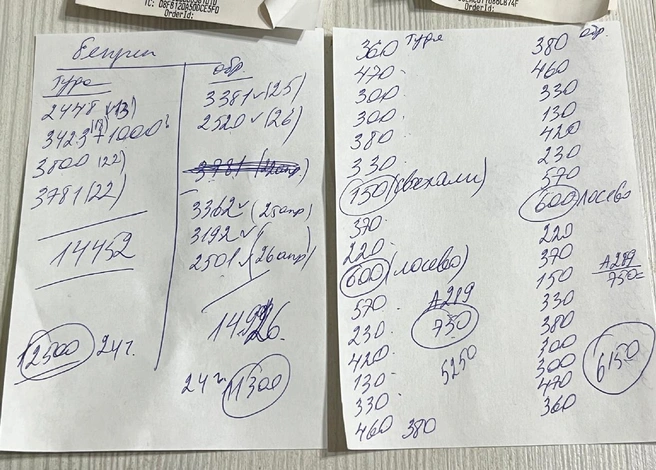 TC: D8F8120A50DCE5FD
OrderId:
OrderId:
Бензин
туда
2448 (13)
3423 (17) 1000
3800 (22)
3781 (22)
14452
12500 24г.
обр
3381 v (25)
2520 v (26)
3781 (22апр)
3362 v (25апр)
3192 v (
2501 v (26апр)
14926.
24г. 11300
360 туда
470
300
300
380
330
150 (съехали)
370
220
600 (лосево)
570
230
420
130
330
460 380
А289
750
5250
380 обр.
460
330
130
420
230
570
600 лосево
220
370
150
330
380
300
300
470
360
А289
750=
6150